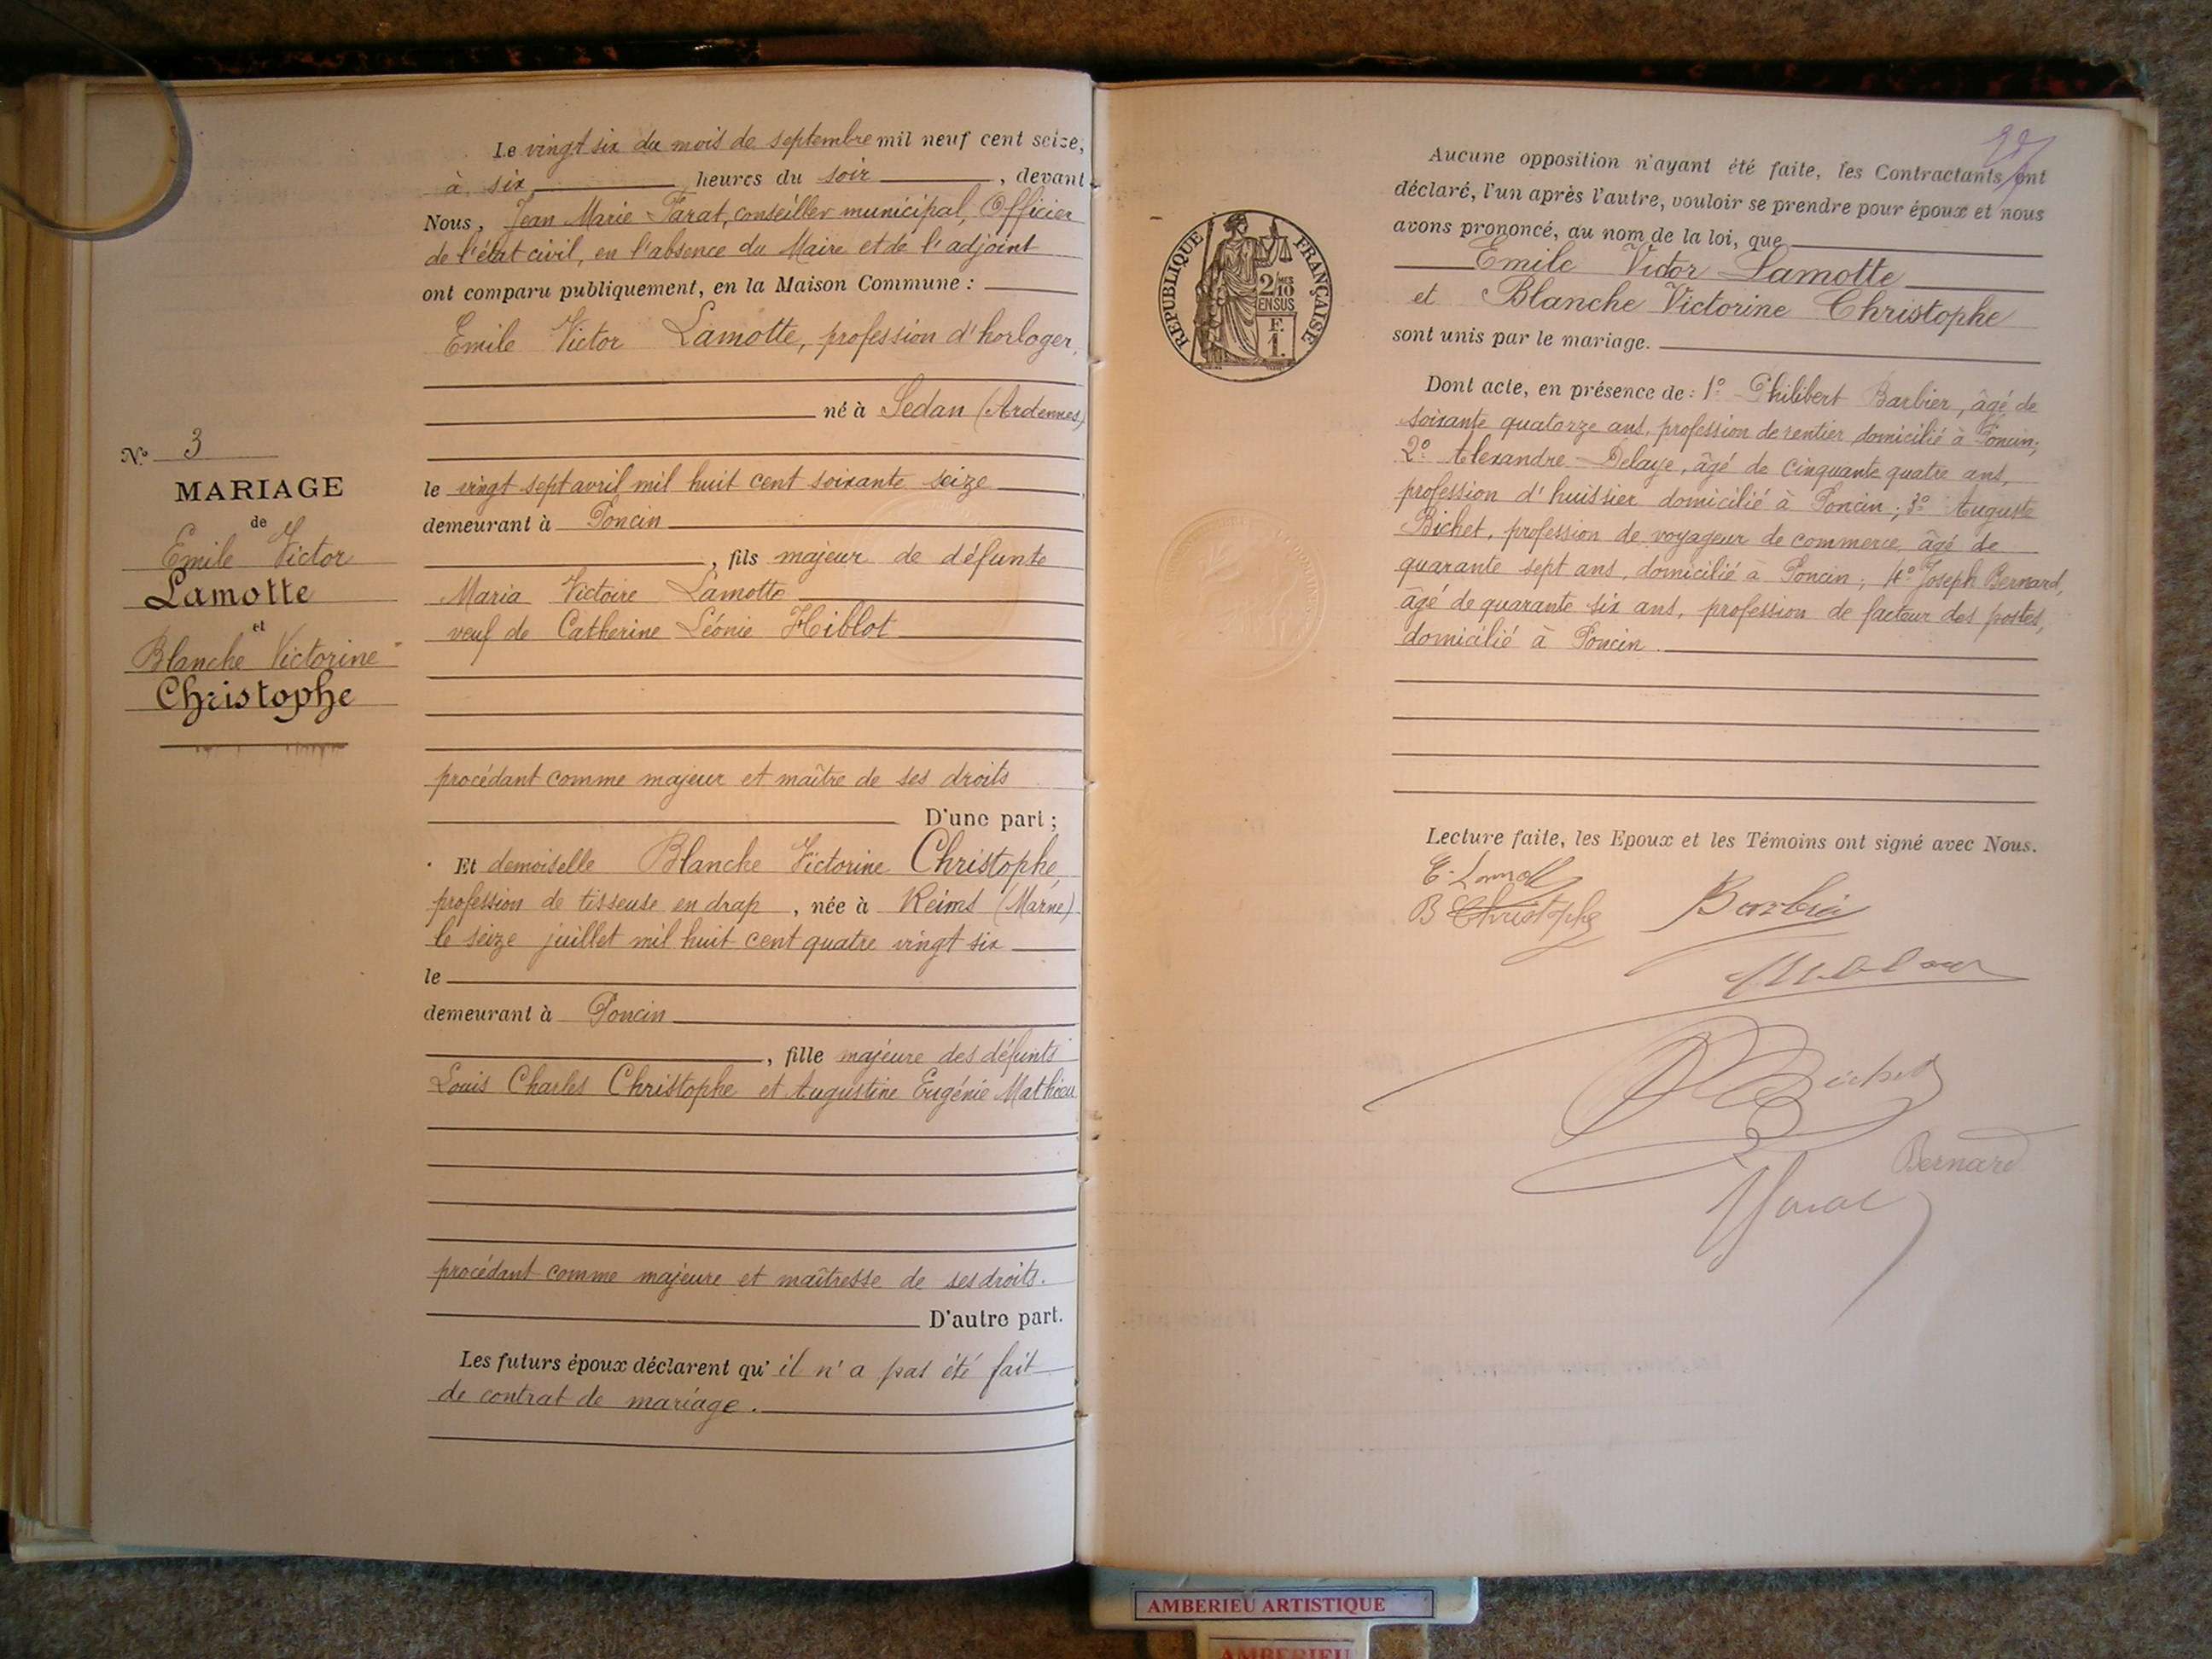 N° 3
MARIAGE
de
Emile Victor
Lamotte
et
Blanche Victorine
Christophe
Le vingt six du mois de septembre mil neuf cent seize,
à six heures du soir, devant
Nous, Jean Marie Farat, conseiller municipal, Officier
de l'état civil, en l'absence du Maire et de l'adjoint
ont comparu publiquement, en la Maison Commune :
Emile Victor Lamotte, profession d'horloger,
né à Sedan (Ardennes)
le vingt sept avril mil huit cent soixante seize
demeurant à Poncin
, fils majeur de défunte
Maria Victoire Lamotte
veuf de Catherine Léonie Hiblot
procédant comme majeur et maître de ses droits
D'une part ;
Et demoiselle Blanche Victorine Christophe,
profession de tisseuse en drap, née à Reims (Marne)
le seize juillet mil huit cent quatre vingt six
le
demeurant à Poncin
, fille majeure des défunts
Louis Charles Christophe et Augustine Eugénie Mathieu
procédant comme majeure et maîtresse de ses droits.
D'autre part.
Les futurs époux déclarent qu'il n'a pas été fait
de contrat de mariage.
REPUBLIQUE FRANÇAISE
2/10 MES
EN SUS
F.
1.
Aucune opposition n'ayant été faite, les Contractants ont
déclaré, l'un après l'autre, vouloir se prendre pour époux et nous
avons prononcé, au nom de la loi, que
Emile Victor Lamotte
et Blanche Victorine Christophe
sont unis par le mariage.
Dont acte, en présence de : 1° Philibert Barbier, âgé de
soixante quatorze ans, profession de rentier domicilié à Poncin;
2° Alexandre Delaye, âgé de cinquante quatre ans,
profession d'huissier domicilié à Poncin ; 3° Auguste
Bichet, profession de voyageur de commerce, âgé de
quarante sept ans, domicilié à Poncin ; 4° Joseph Bernard,
âgé de quarante six ans, profession de facteur des postes,
domicilié à Poncin.
Lecture faite, les Epoux et les Témoins ont signé avec Nous.
E. Lamotte
B Christophe
Barbier
Bichet
Bernard
Farat
AMBERIEU ARTISTIQUE
AMBERIEU